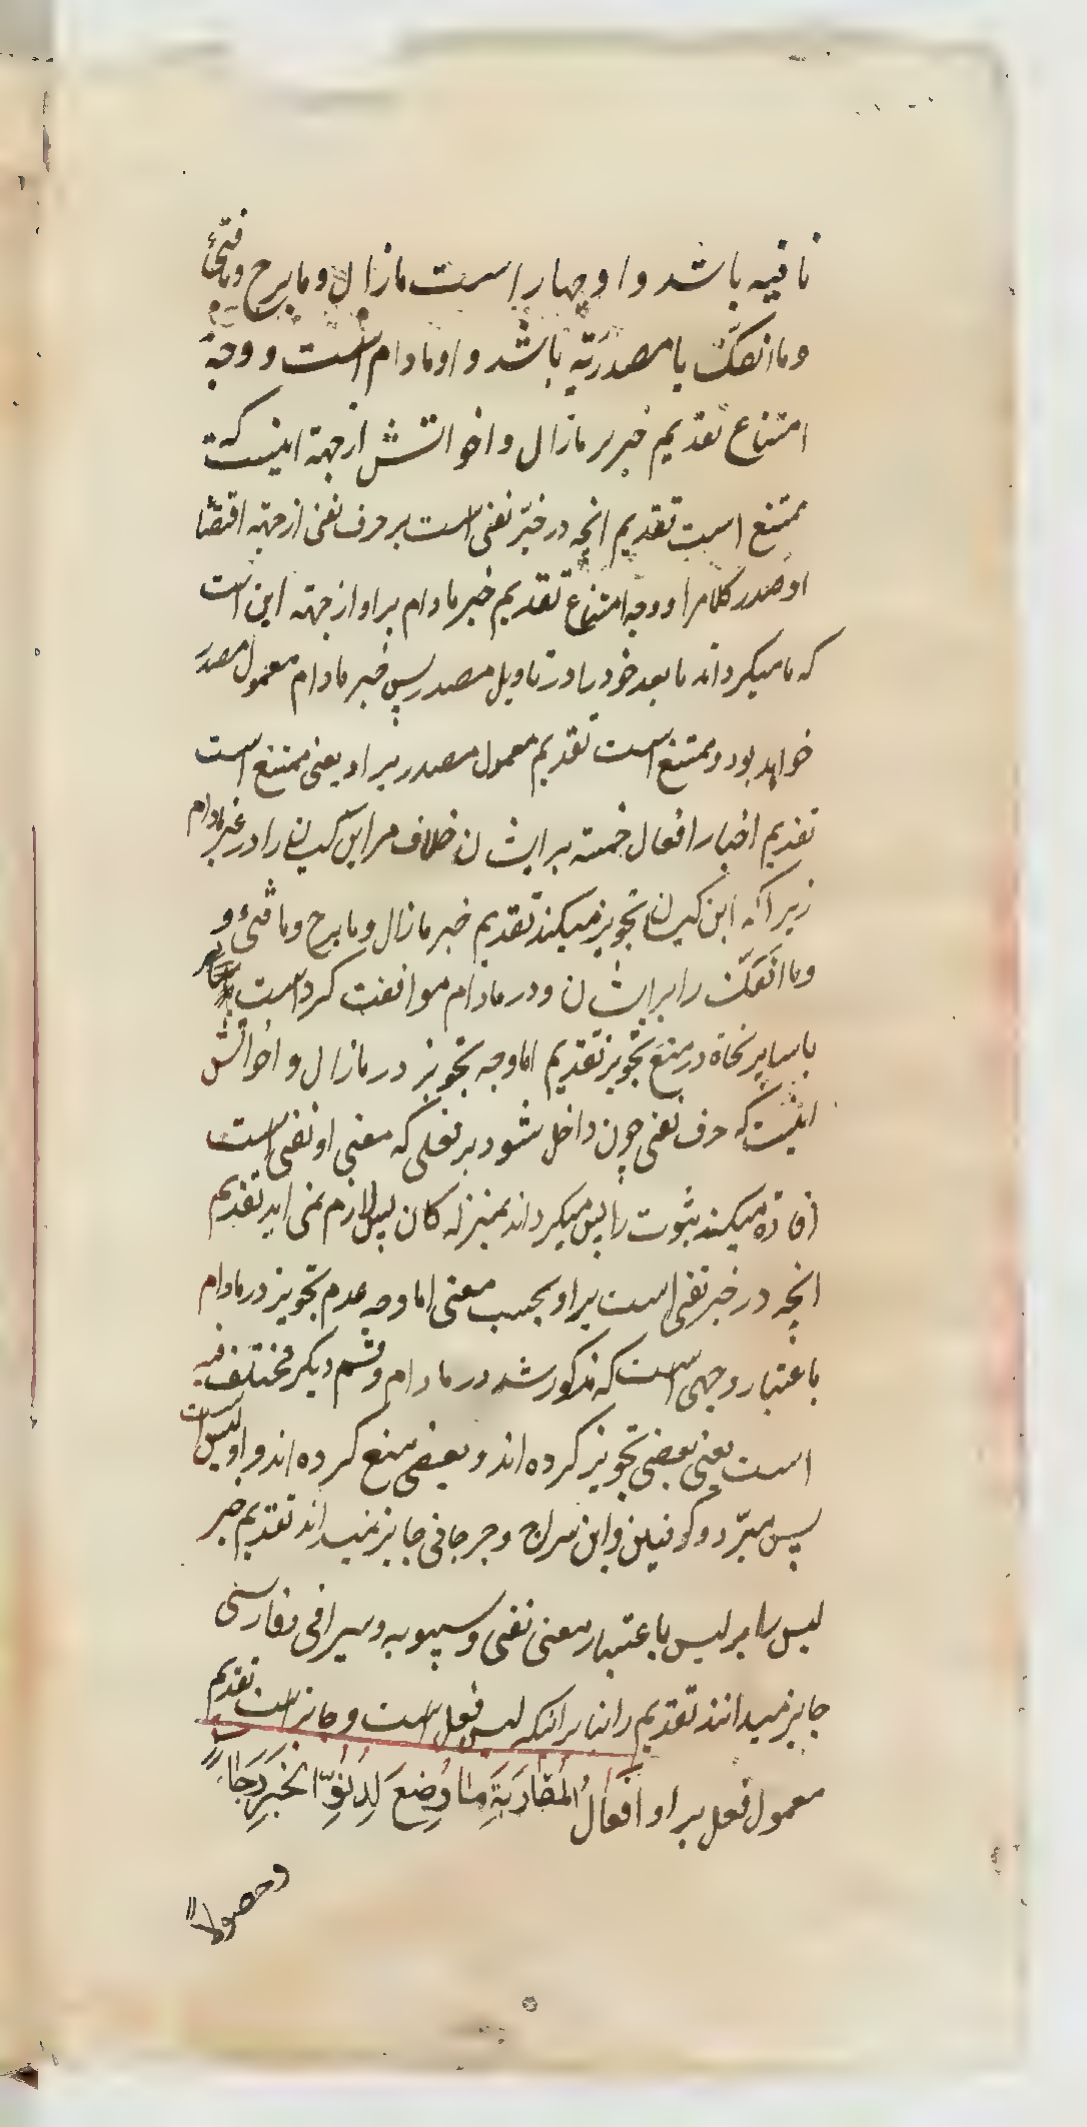 نافیه باشد و او چهار است مازال و ما برح و ما فتئ
و ما انفک یا مصدریّه باشد و او مادام است و وجه
امتناع تقدیم خبر بر مازال و اخواتش از جهة اینست که
ممتنع است تقدیم انچه در خبر نفی است بر حرف نفی از جهته اقتضا
او صدر کلامرا و وجه امتناع تقدیم خبر مادام بر او از جهته این است
که ما میکرداند ما بعد خود را در تاویل مصدر پس خبر مادام معمول مصدر
خواهد بود و ممتنع است تقدیم معمول مصدر بر او یعنی ممتنع است
تقدیم اخبار افعال خمسه بر ایشان خلاف مر ابن کیسان را در غیر مادام
زیرا که ابن کیسان تجویز میکند تقدیم خبر مازال و ما برح و ما فتئ و
و ما انفکّ را بر ایشان و در مادام موافقت کرد است
با سایر نحاة در منع تجویز تقدیم اما وجه تجویز در مازال و اخواتش
اینست که حرف نفی چون داخل شود بر فعلی که معنی او نفی است
افاده میکند ثبوت را پس میکرداند بمنزله کان پس لازم نمی اید تقدیم
انچه در خبر نفی است بر او بحسب معنی اما وجه عدم تجویز در مادام
باعتبار وجهی است که مذکور شد در مادام و قسم دیکر مختلف فیه
است یعنی بعضی تجویز کرده اند و بعضی منع کرده اند و او لیس است
پس مبرّد و کوفیین و ابن سراج و جرجانی جایز نمیداند تقدیم خبر
لیس را بر لیس باعتبار معنی نفی و سیبویه و سیرافی و فارسی
جایز میدانند تقدیم را بنا بر انکه لیس فعل است و جایز است تقدیم
معمول فعل بر او افعالُ المُقارَبَةِ ما وُضِعَ لِدُنُوِّ الخَبَرِ رَجاءً
او حصولاً